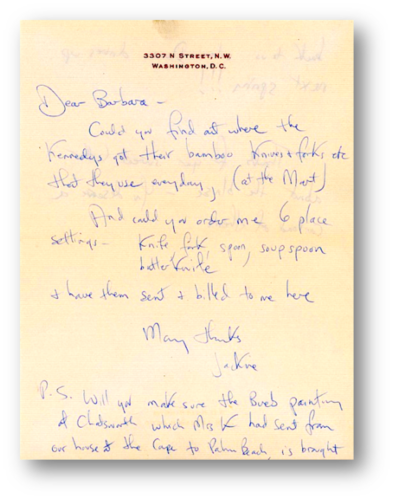 3307 N STREET, N.W.
WASHINGTON, D.C.
Dear Barbara -
Could you find out where the
Kennedys got their bamboo knives & forks etc
that they use everyday, (at the Mart)
And could you order me 6 place
settings - Knife fork, spoon, soup spoon
butter knife
& have them sent & billed to me here
Many thanks
Jackie
P.S. Will you make sure the painting
of Chatsworth which Mrs K had sent from
our house at the Cape to Palm Beach, is brought